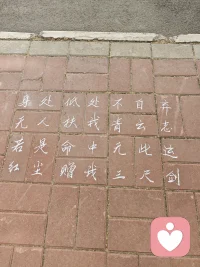 身处低处不自弃
无人扶我青云志
若是命中无此运
红尘赠我三尺剑